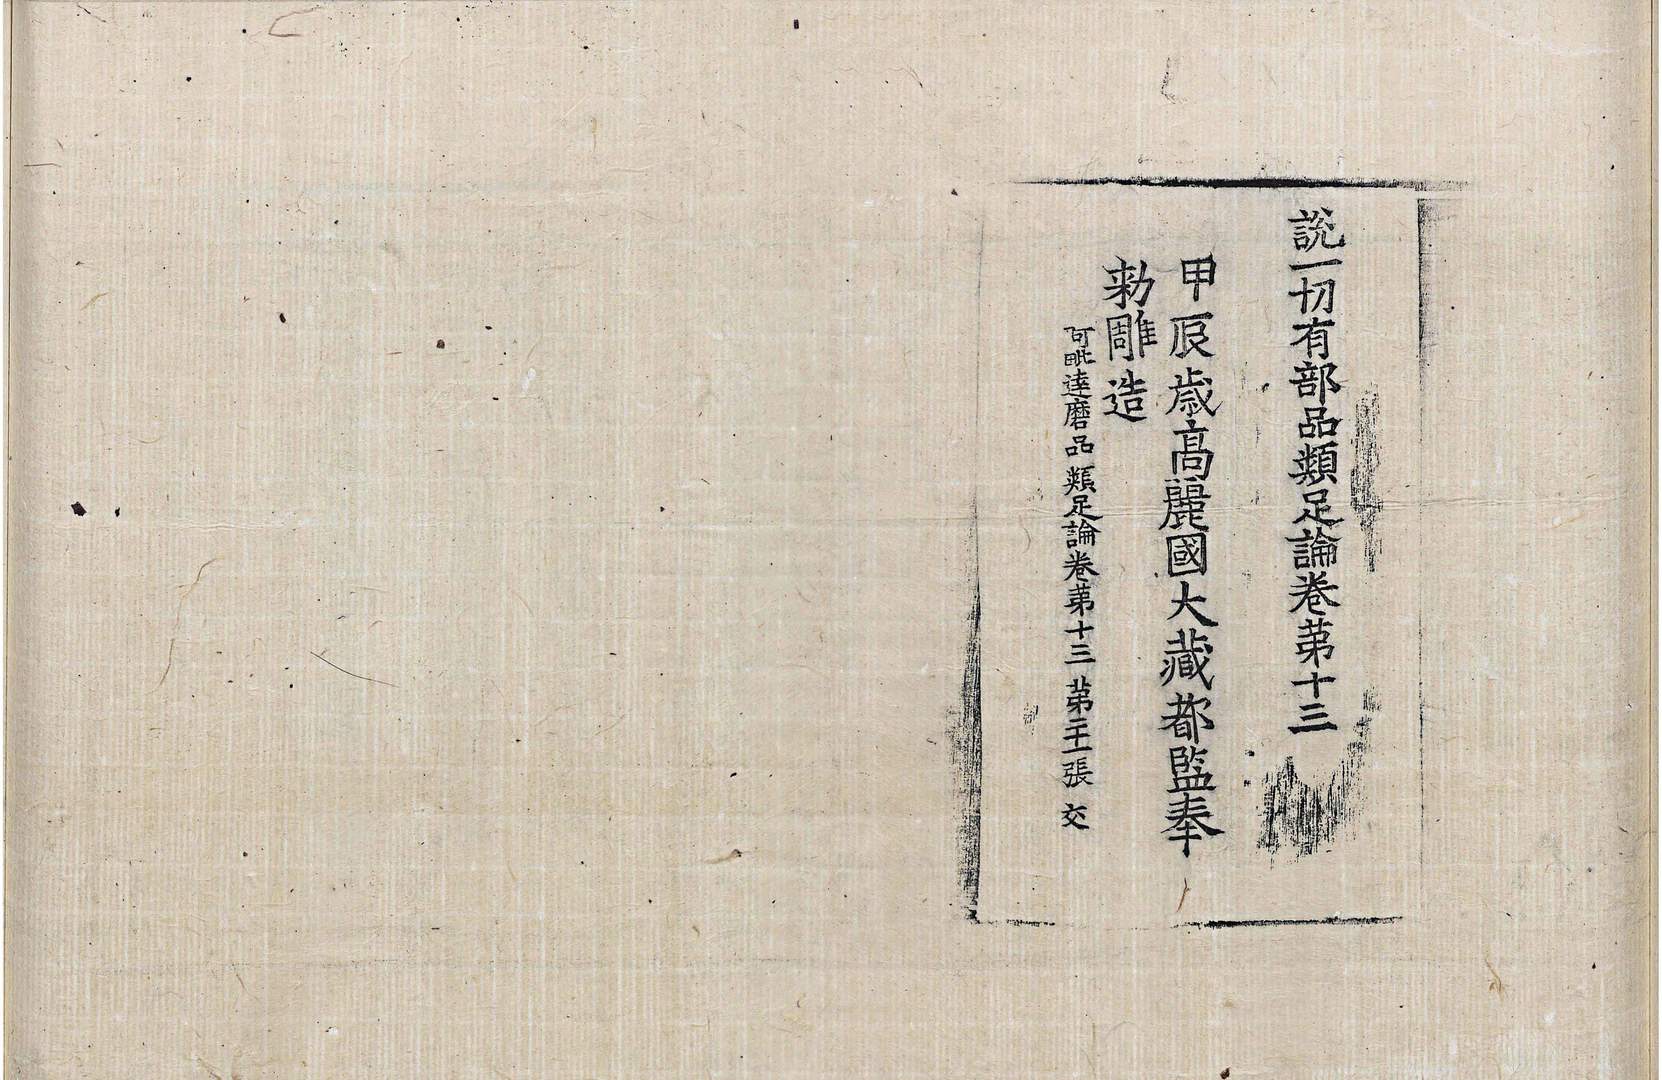 說一切有部品類足論卷苐十三
甲辰歲高麗國大藏都監奉
勑雕造
阿毗達磨品類足論卷苐十三 苐二十一張 交